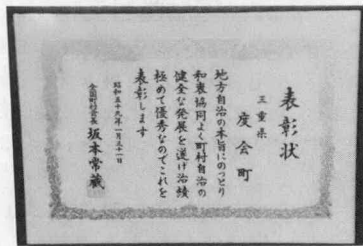 表彰状
三重県
度会町
地方自治の本旨にのっとり
和衷協同よく町村自治の
健全な発展を遂げ治績
極めて優秀なのでこれを
表彰します
昭和五十九年一月三十一日
全国町村会長 坂本常蔵